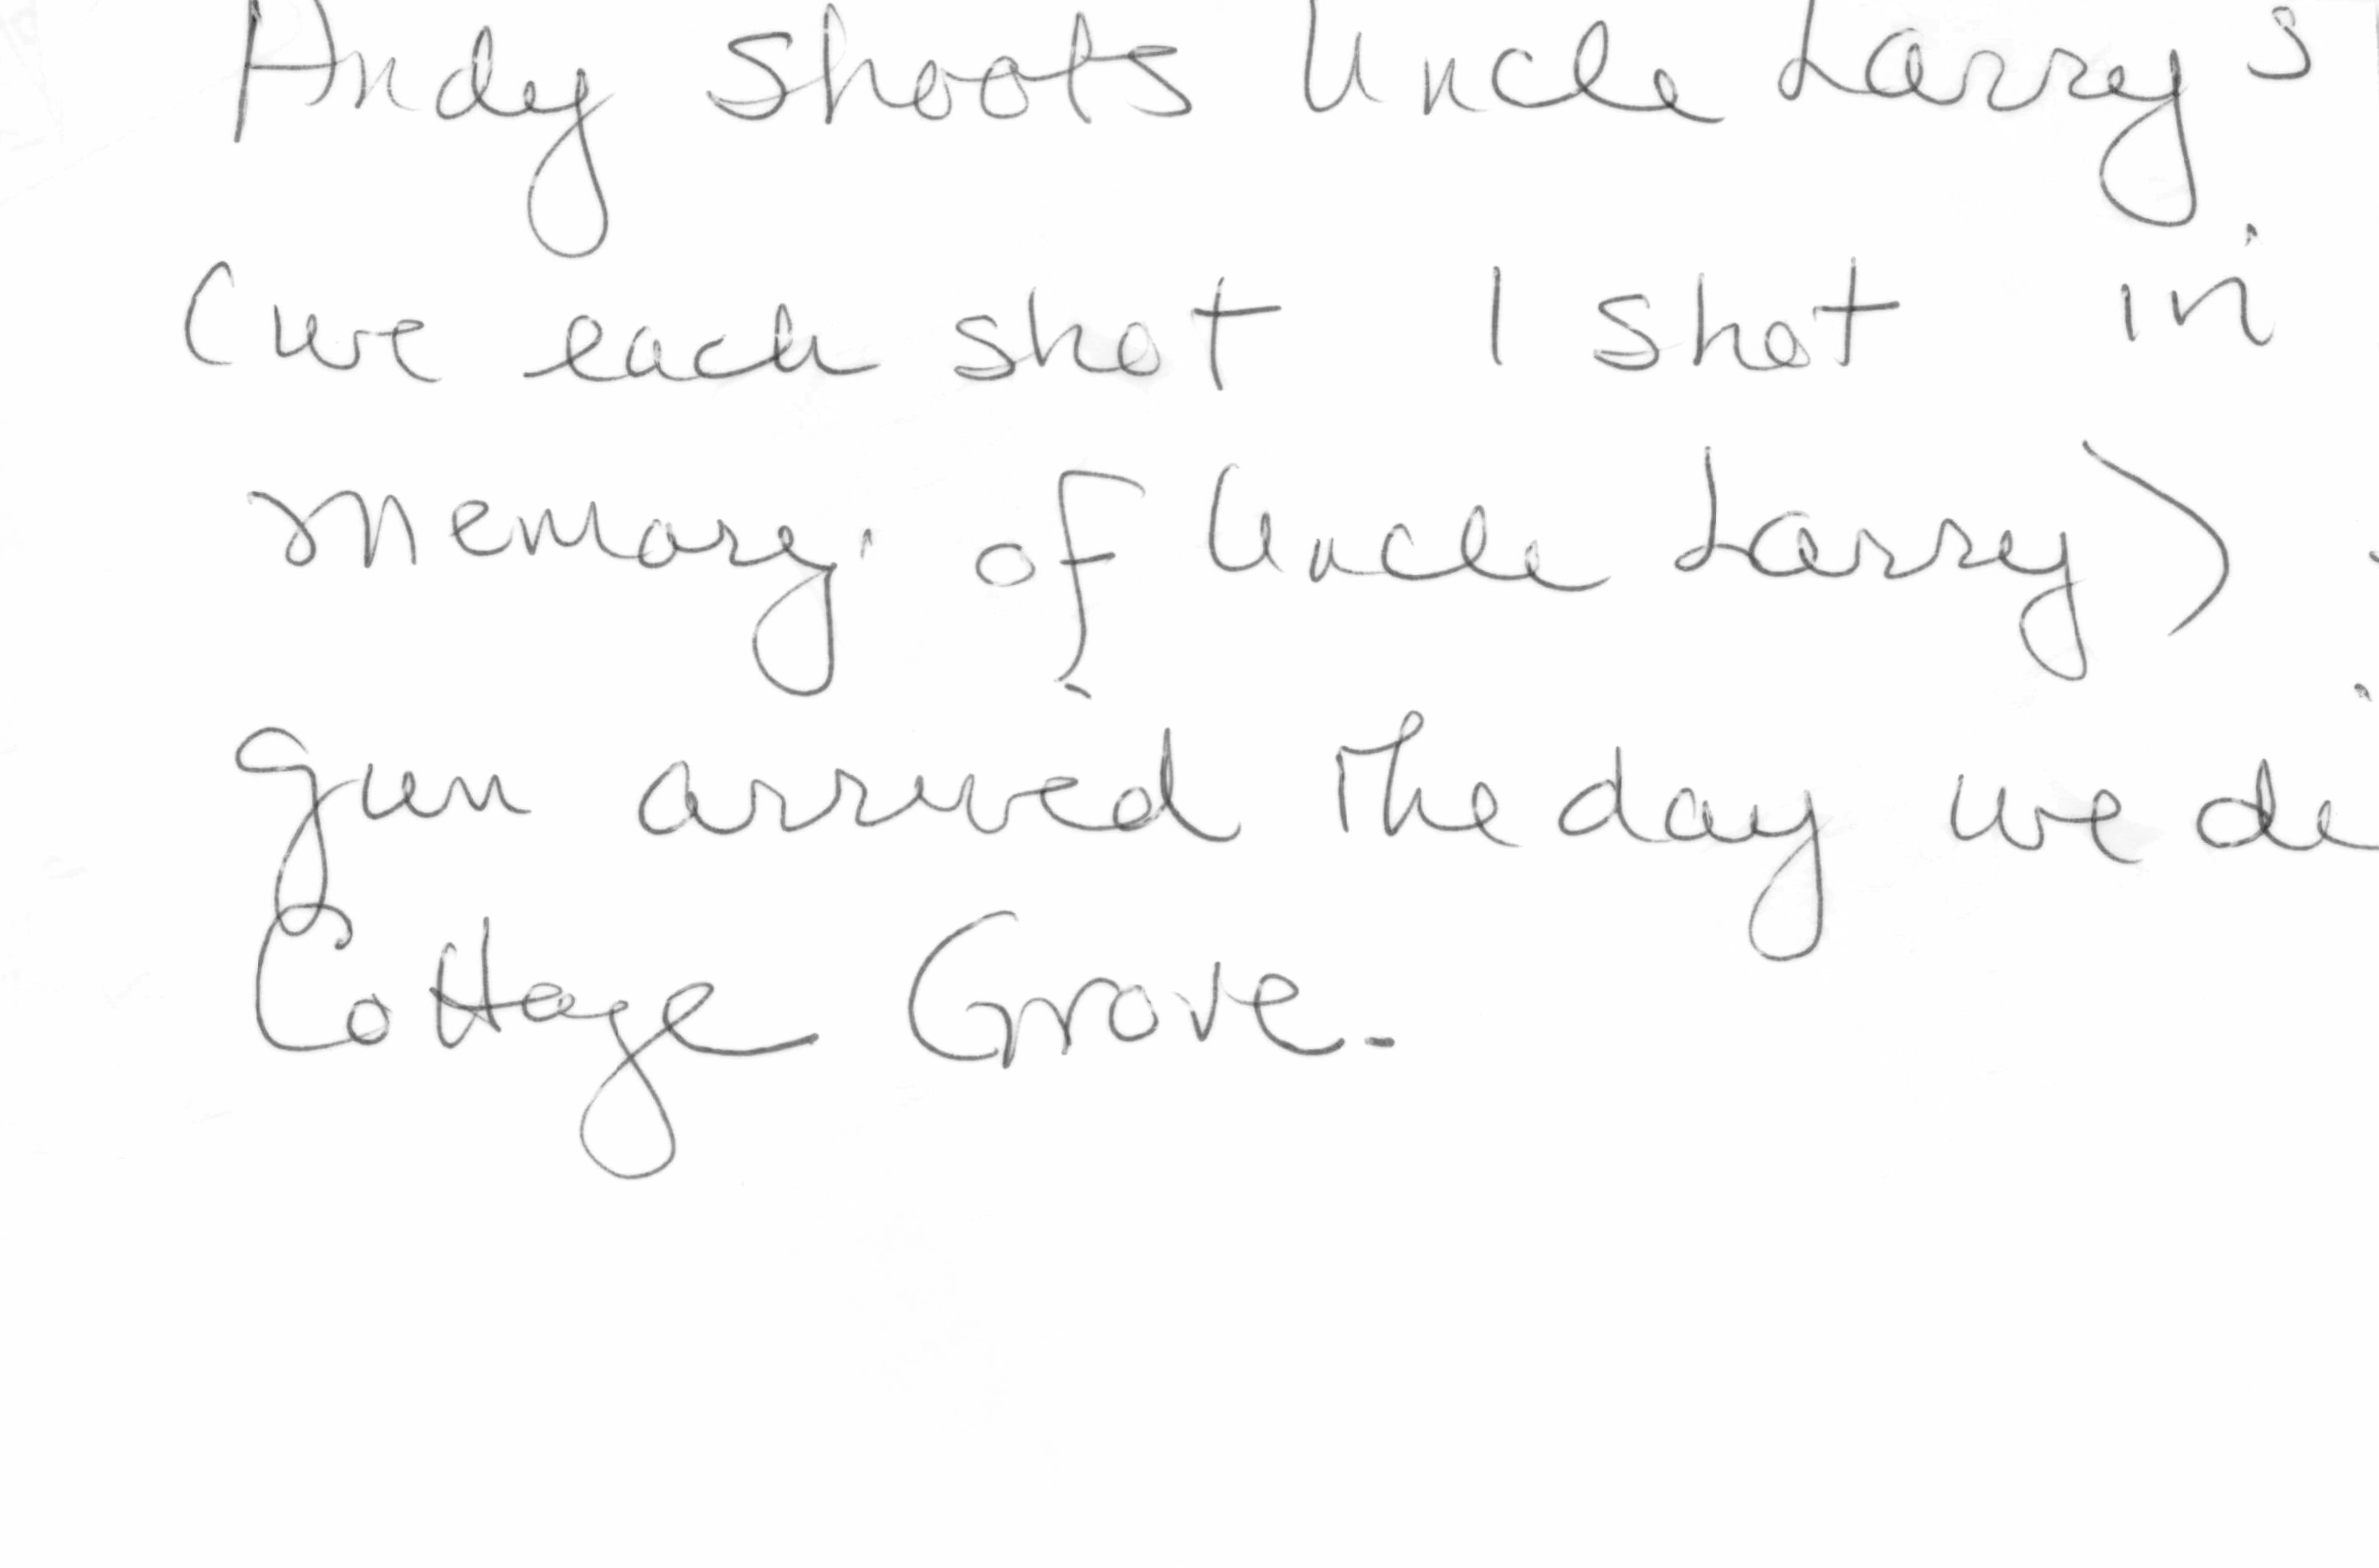 Andy shoots Uncle Larry's
(we each shot 1 shot in
memory of Uncle Larry)
gun arrived the day we
Cottage Grove.